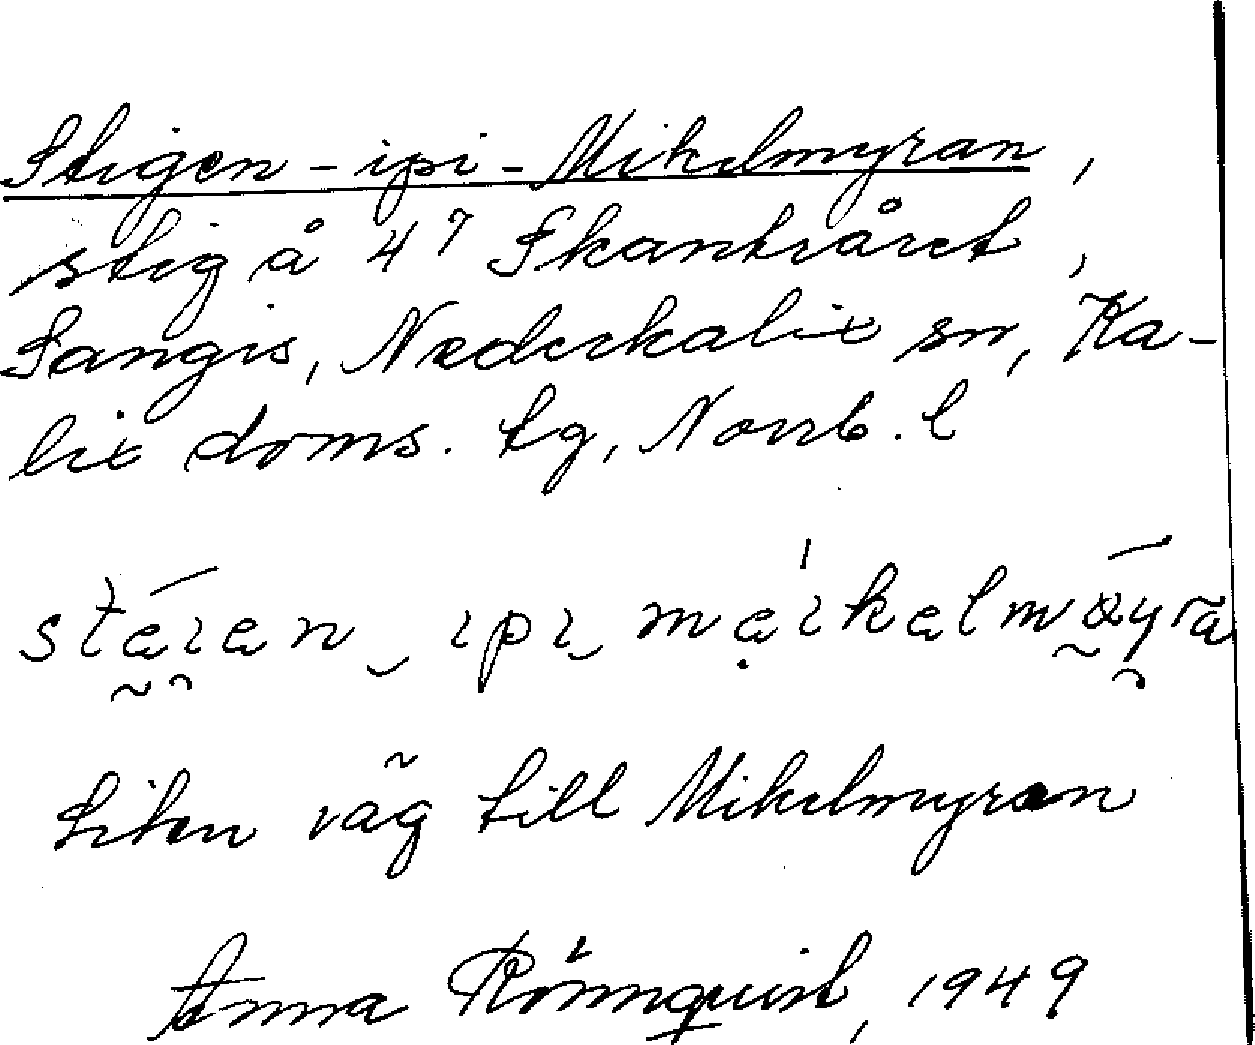 Stigen-ipi-Mikelmyran,
stig å 4⁷ Skantråret,
Sangis, Nederkalix sn, Ka-
lix doms. tg, Norrb. l
Liten väg till Mikelmyran
Anna Rönnquist, 1949